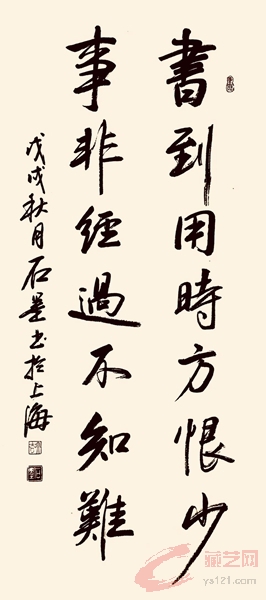 書到用時方恨少
事非經過不知難
戊戌秋月石墨书於上海
藏艺网
ys121.com